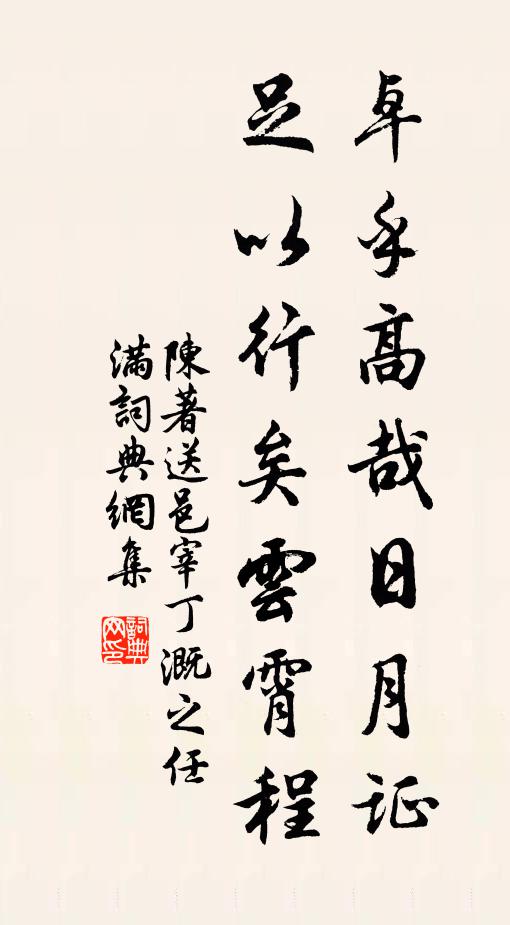 卓乎高哉日月证
足以行矣雲霄程
陳著送邑宰丁溉之任
滿詞典網集
詞典网印